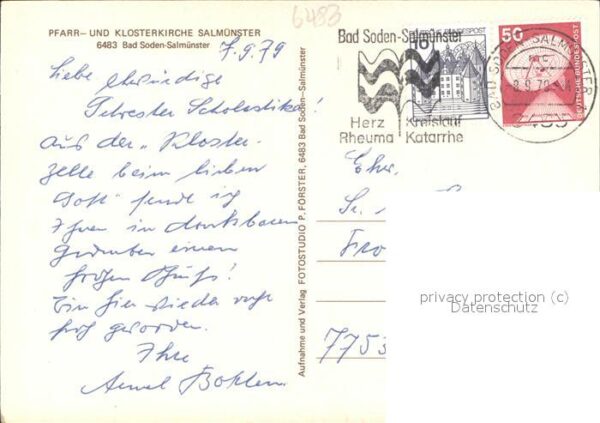 6483
PFARR- UND KLOSTERKIRCHE SALMÜNSTER
6483 Bad Soden-Salmünster
7.9.79
Liebe ehrwürdige
Schwester Scholastika!
Aus der "Kloster-
zelle beim lieben
Gott" sende ich
Ihnen in dankbarem
Gedenken einen
frohen Gruß!
Bin hier wieder recht
froh geworden.
Ihre
Aufnahme und Verlag FOTOSTUDIO P. FÖRSTER, 6483 Bad Soden-Salmünster
Bad Soden-Salmünster
Herz Kreislauf
Rheuma Katarrhe
10
50
DEUTSCHE BUNDESPOST
BAD SODEN-SALMÜNSTER
Ehrw.
Sr.
7753
privacy protection (c)
Datenschutz